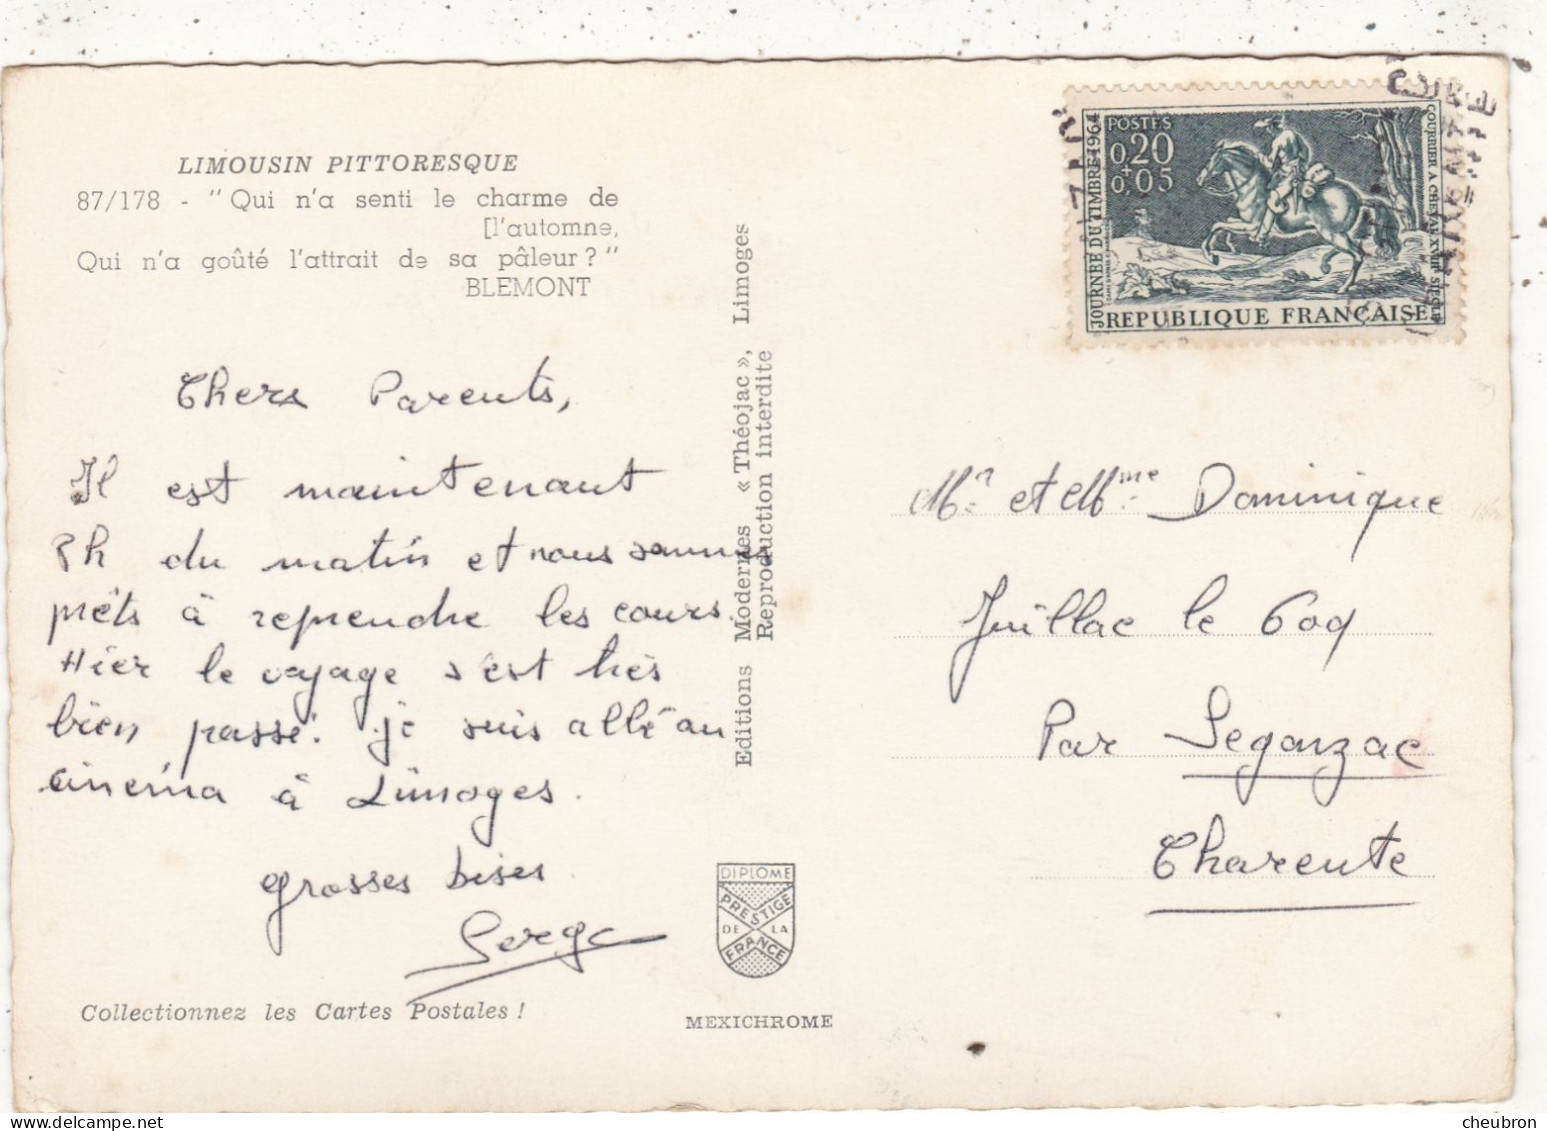 LIMOUSIN PITTORESQUE
87/178 - "Qui n'a senti le charme de
[l'automne,
Qui n'a goûté l'attrait de sa pâleur ?"
BLEMONT
Chers Parents,
Il est maintenant
8h du matin et nous sommes
prêts à reprendre les cours.
Hier le voyage s'est très
bien passé. je suis allé au
cinéma à Limoges.
grosses bises
Serge
Collectionnez les Cartes Postales !
Editions Modernes « Théojac », Limoges
Reproduction interdite
DIPLOME
PRESTIGE
DE LA
FRANCE
MEXICHROME
JOURNÉE DU TIMBRE 1964
POSTES
0,20
+
0,05
COURRIER A CHEVAL XVIIIe SIECLE
REPUBLIQUE FRANÇAISE
Mr et Mme Dominique
Juillac le Coq
Par Segonzac
Charente
cheubron